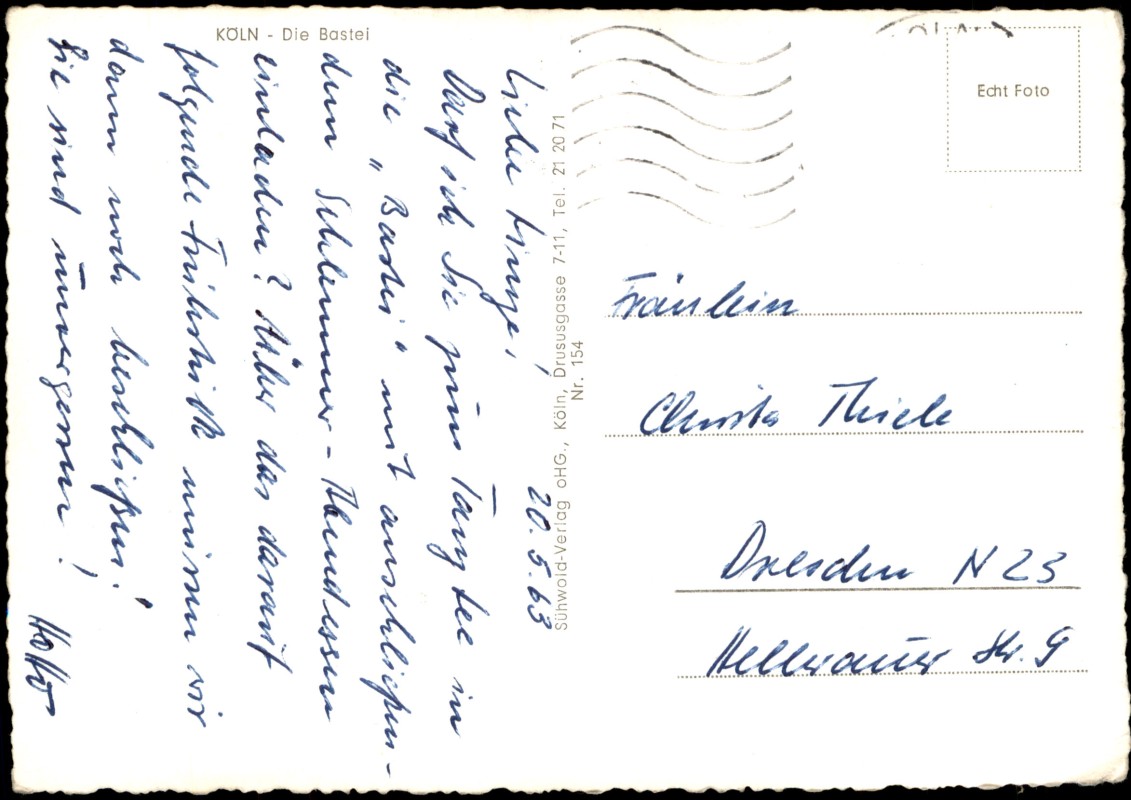 KÖLN - Die Bastei
20.5.63
Liebe Kinge,
Darf ich Sie zum Tanztee in
die „Bastei" mit anschließen-
dem Schlemmer-Abendessen
einladen? Über das darauf
folgende Frühstück müssen wir
dann noch beschließen!
Sie sind unvergessen!
Sühwold-Verlag oHG., Köln, Drususgasse 7-11, Tel. 21 20 71
Nr. 154
KÖLN
Echt Foto
Fräulein
Christa Thiele
Dresden N 23
Hellerauer Str. 9